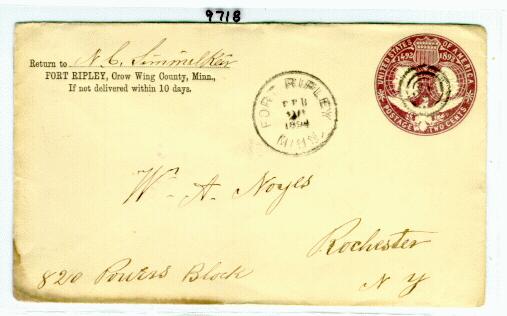 9718
Return to N. C.
FORT RIPLEY, Crow Wing County, Minn.,
If not delivered within 10 days.
FORT RIPLEY
FEB
1894
MINN.
UNITED STATES OF AMERICA
1492 1892
POSTAGE TWO CENTS
W. A. Noyes
Rochester
820 Powers Block
N Y